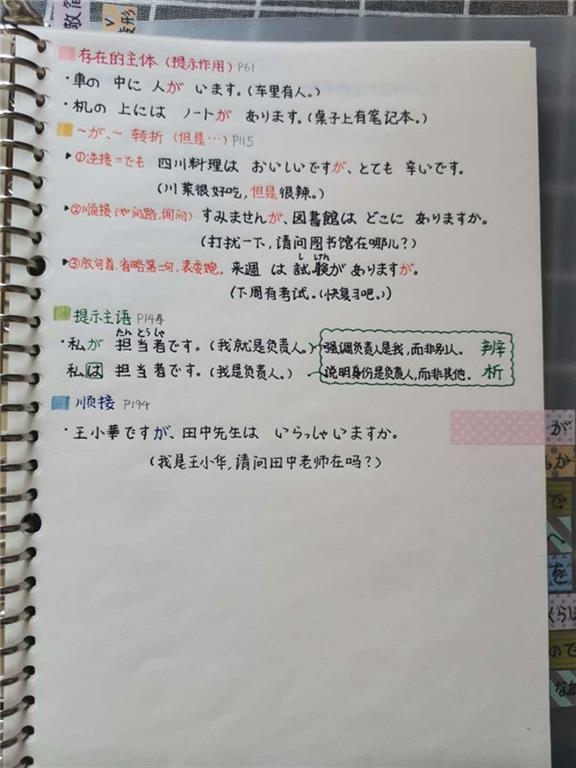 存在的主体(提示作用) P61
・車の 中に 人が います。(车里有人。)
・机の 上には ノートが あります。(桌子上有笔记本。)
~が、~ 转折(但是…) P115
▸①逆接=でも 四川料理は おいしいですが、とても 辛いです。
(川菜很好吃,但是很辣。)
▸②顺接(如问路,询问) すみませんが、図書館は どこに ありますか。
(打扰一下,请问图书馆在哪儿?)
▸③放句首,省略第二句,表委婉。来週 は 試験が ありますが。
し けん
(下周有考试。(快复习吧。))
提示主语 P144
たん とう しゃ
・私が 担当者です。(我就是负责人。)
强调负责人是我,而非别人。 辨
私は 担当者です。(我是负责人。)
说明身份是负责人,而非其他。 析
顺接 P194
・王小華ですが、田中先生は いらっしゃいますか。
(我是王小华,请问田中老师在吗?)
が
か
で
へ
を
くらい
ので